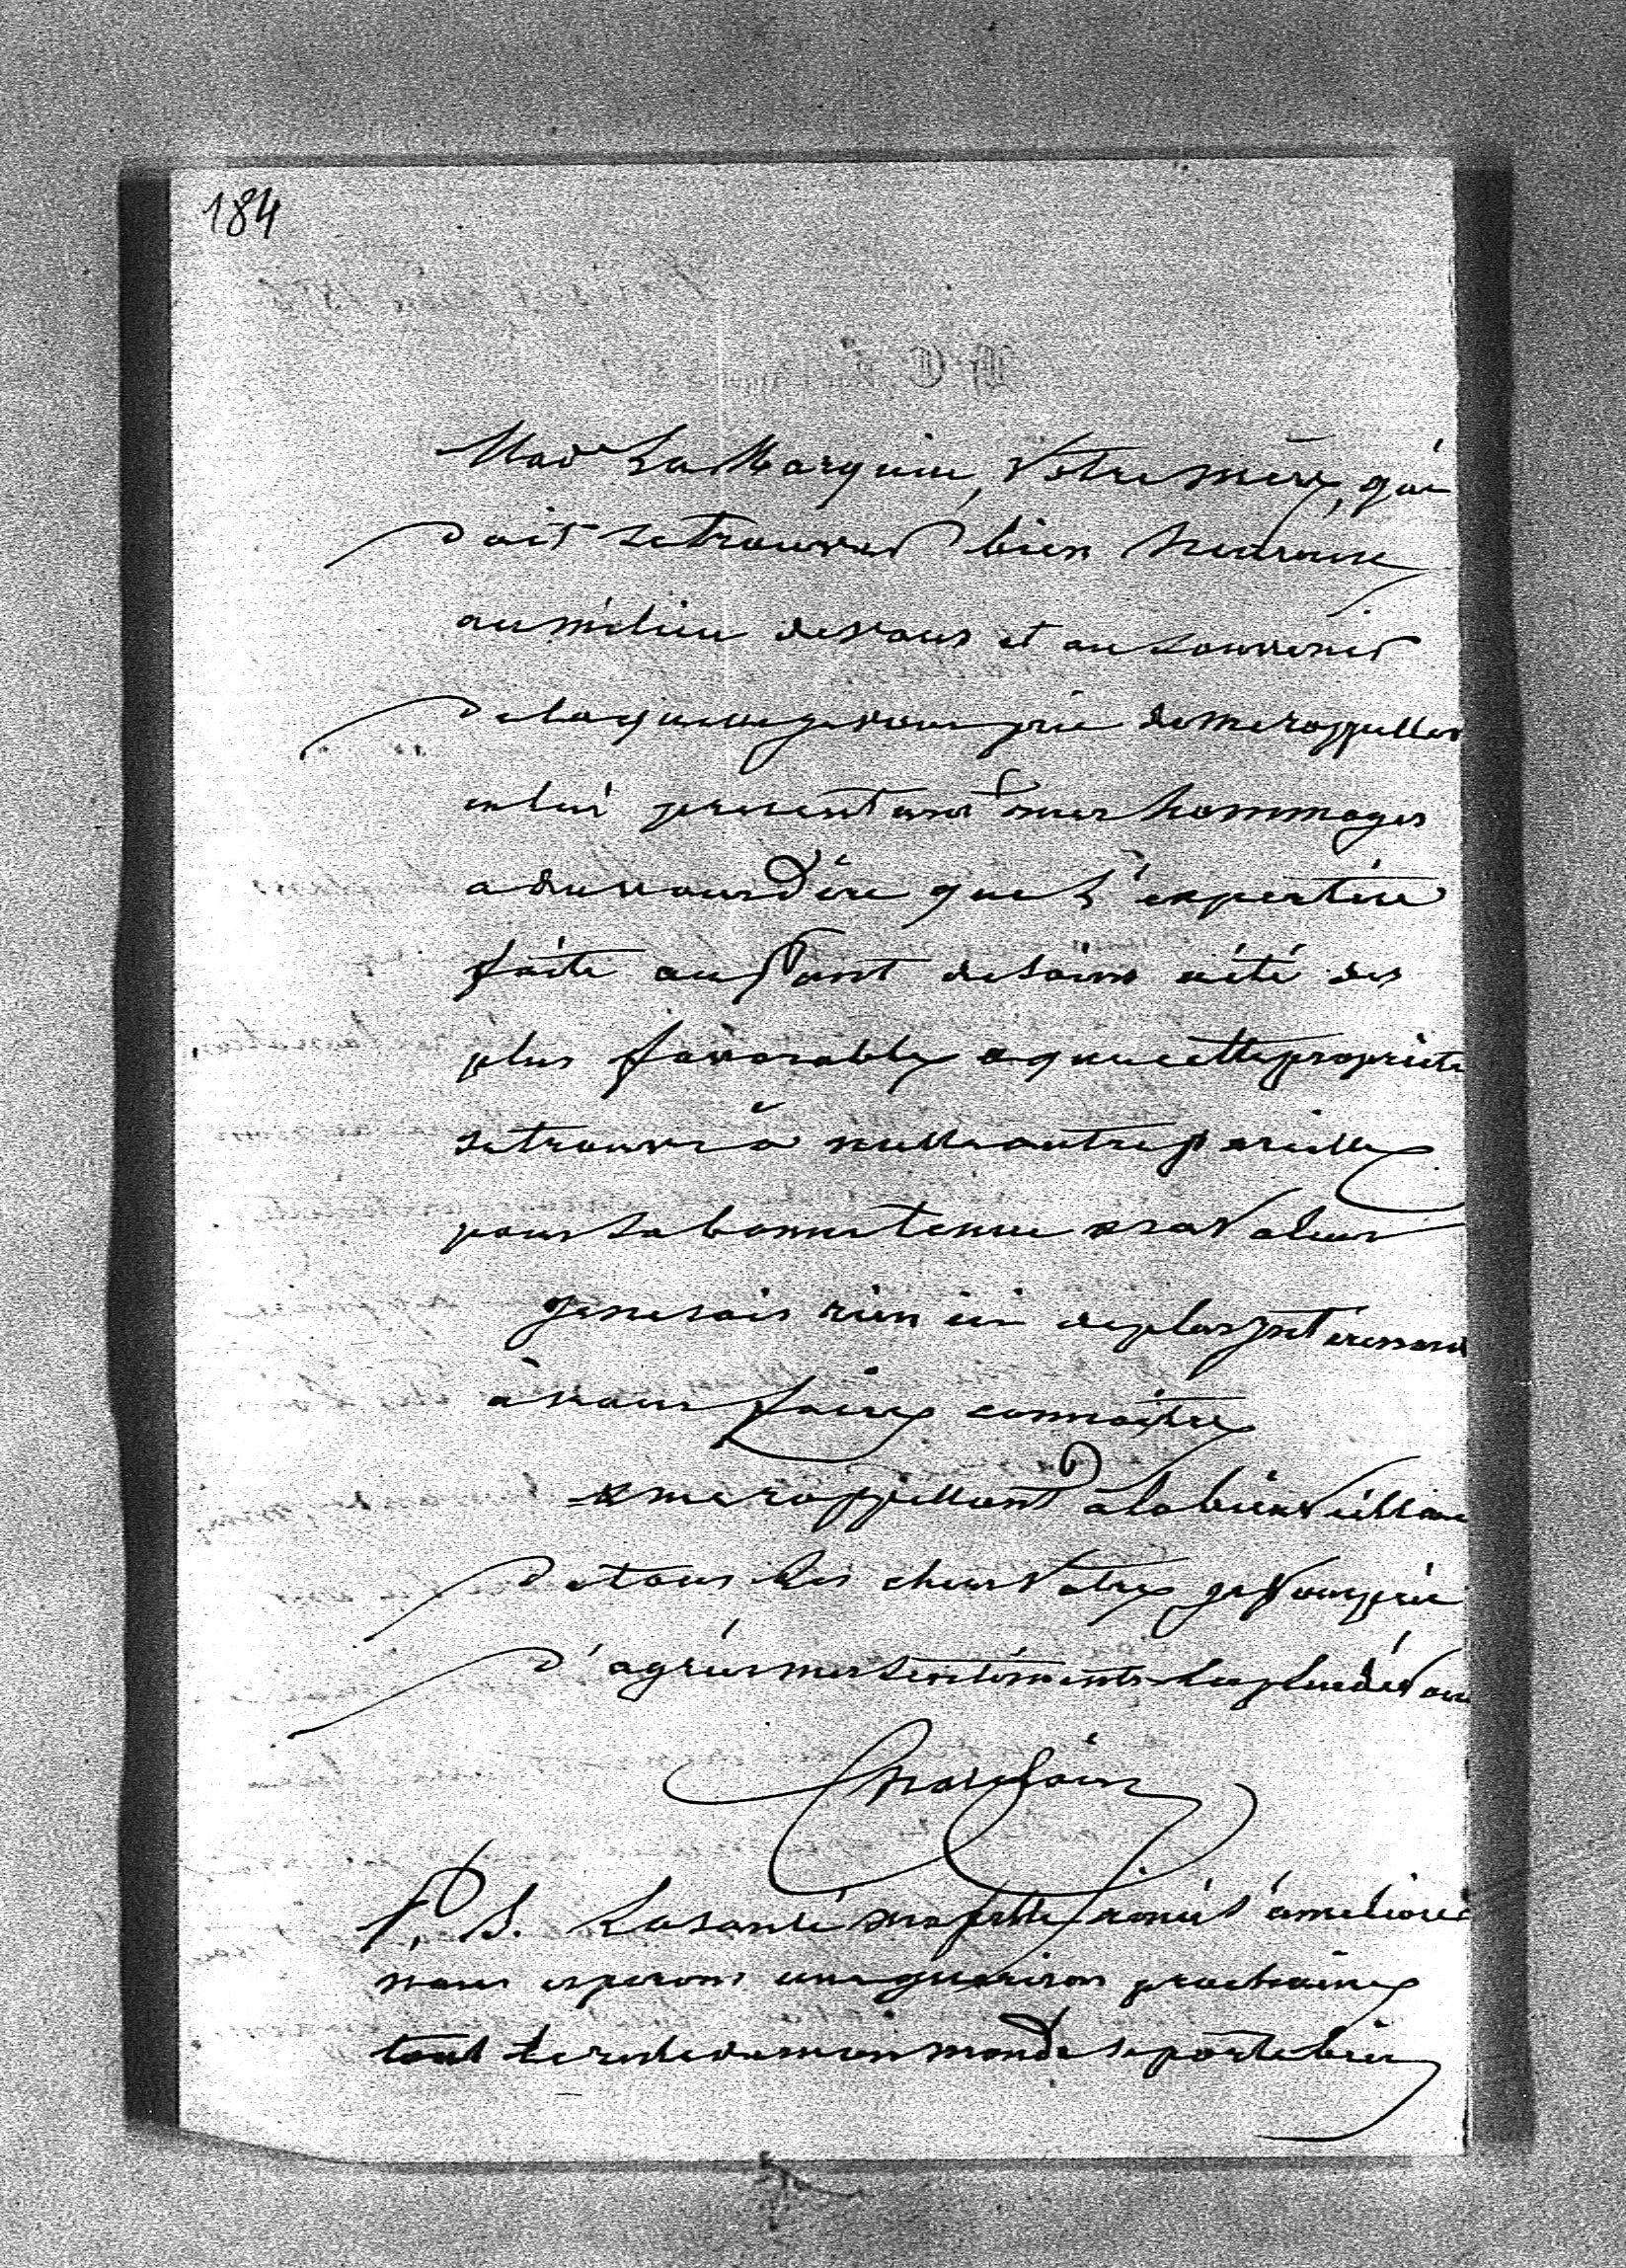 184
Mad.e La Marquise, Votre mère, qui
doit se trouver bien heureuse
au milieu de vous et au souvenir
de la quelle je vous prie de me rappeller
en lui presentant mes hommages
a vous dire que l'expertise
faite au de soins a été des
plus favorable & que cette propriete
se trouve à nulle autre pareille
pour sa bonne tenue & sa Valeur
Je ne sais rien ici de plus Interessant
à vous faire connaître
& me rappellant à la bienveillance
de tous les chers Votres je Vous prie
d'agréer mes sentiments les plus dévoués
P. S. La santé ma fille s'améliore
nous esperons une guerison prochaine
tout le reste de mon monde se porte bien